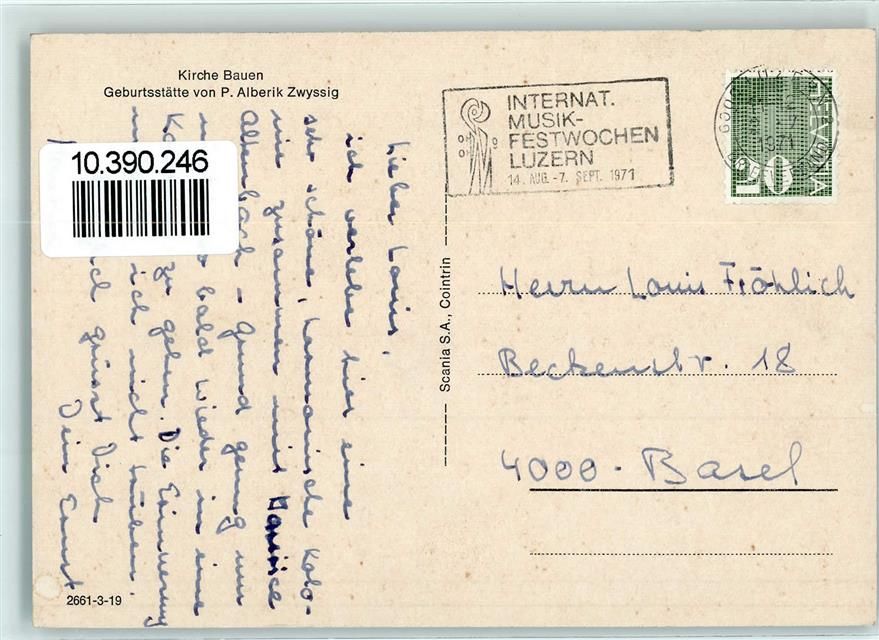 Kirche Bauen
Geburtsstätte von P. Alberik Zwyssig
10.390.246
INTERNAT.
MUSIK-
FESTWOCHEN
LUZERN
14. AUG. -7. SEPT. 1971
6000 LUZERN
1971
HELVETIA
10
Lieber Louis,
ich verlebe hier eine
sehr schöne, harmonische Kolo-
nie zusammen mit Maurice
Altenbach - Grund genug um
bald wieder in eine
zu gehen. Die Erinnerung
ich nicht trüben.
grüsst Dich
Dein Ernst
2661-3-19
Scania S.A., Cointrin
Herrn Louis Fröhlich
Beckenstr. 18
4000 - Basel